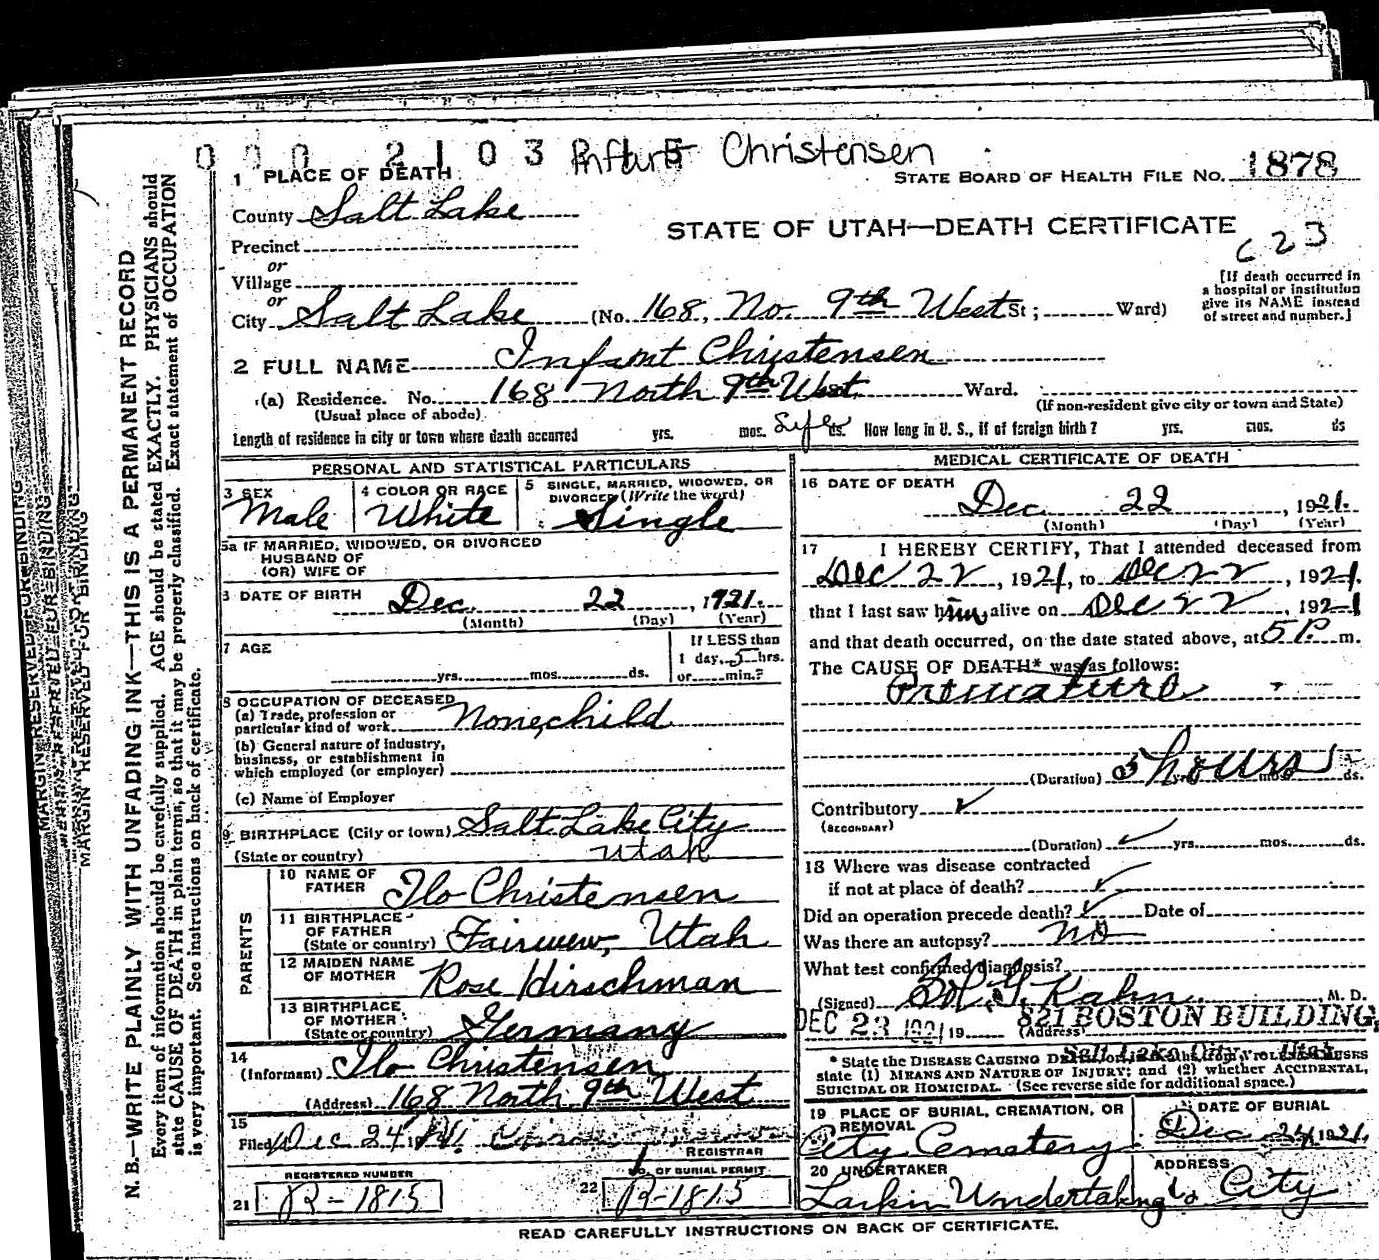 000 2103 Christensen
1 PLACE OF DEATH
STATE BOARD OF HEALTH FILE NO. 1878
County Salt Lake
STATE OF UTAH—DEATH CERTIFICATE
623
Precinct
or
Village
or
[If death occurred in
a hospital or institution
give its NAME instead
of street and number.]
City Salt Lake (No. 168, No. 9th West St; Ward)
2 FULL NAME Infant Christensen
(a) Residence. No. 168 North 9th West. Ward.
(Usual place of abode) (If non-resident give city or town and State)
Length of residence in city or town where death occurred yrs. mos. Life ds. How long in U. S., if of foreign birth? yrs. mos. ds
PERSONAL AND STATISTICAL PARTICULARS
3 SEX
Male
4 COLOR OR RACE
White
5 SINGLE, MARRIED, WIDOWED, OR
DIVORCED (Write the word)
Single
5a IF MARRIED, WIDOWED, OR DIVORCED
HUSBAND OF
(OR) WIFE OF
DATE OF BIRTH Dec. 22, 1921.
(Month) (Day) (Year)
7 AGE
yrs. mos. ds.
If LESS than
1 day, 5 hrs.
or min.?
8 OCCUPATION OF DECEASED
(a) Trade, profession or
particular kind of work None, child
(b) General nature of industry,
business, or establishment in
which employed (or employer)
(c) Name of Employer
9 BIRTHPLACE (City or town) Salt Lake City
(State or country) Utah
PARENTS
10 NAME OF
FATHER Ilo Christensen
11 BIRTHPLACE
OF FATHER
(State or country) Fairview, Utah
12 MAIDEN NAME
OF MOTHER Rose Hirschman
13 BIRTHPLACE
OF MOTHER
(State or country) Germany
14
(Informant) Ilo Christensen
(Address) 168 North 9th West
15
Filed Dec 24
REGISTRAR
REGISTERED NUMBER
21 R-1815
NO. OF BURIAL PERMIT
22 R-1815
MEDICAL CERTIFICATE OF DEATH
16 DATE OF DEATH
Dec. 22, 1921.
(Month) (Day) (Year)
17 I HEREBY CERTIFY, That I attended deceased from
Dec 22, 1921, to Dec 22, 1921.
that I last saw him alive on Dec 22, 1921
and that death occurred, on the date stated above, at 5 P. m.
The CAUSE OF DEATH* was as follows:
Premature
(Duration) 5 hours yrs. mos. ds.
Contributory
(SECONDARY)
(Duration) yrs. mos. ds.
18 Where was disease contracted
if not at place of death?
Did an operation precede death? Date of
Was there an autopsy? no
What test confirmed diagnosis?
(Signed) Kahn M. D.
DEC 23 1921 19 (Address) 821 BOSTON BUILDING,
Salt Lake City, Utah
* State the DISEASE CAUSING DEATH, or in deaths from VIOLENT CAUSES
state (1) MEANS AND NATURE OF INJURY; and (2) whether ACCIDENTAL,
SUICIDAL OR HOMICIDAL. (See reverse side for additional space.)
19 PLACE OF BURIAL, CREMATION, OR
REMOVAL
City Cemetery
DATE OF BURIAL
Dec 24 1921.
20 UNDERTAKER
Larkin Undertaking Co
ADDRESS
City
READ CAREFULLY INSTRUCTIONS ON BACK OF CERTIFICATE.
MARGIN RESERVED FOR BINDING
MARGIN RESERVED FOR BINDING
MARGIN RESERVED FOR BINDING
N. B.—WRITE PLAINLY WITH UNFADING INK—THIS IS A PERMANENT RECORD
Every item of information should be carefully supplied. AGE should be stated EXACTLY. PHYSICIANS should
state CAUSE OF DEATH in plain terms, so that it may be properly classified. Exact statement of OCCUPATION
is very important. See instructions on back of certificate.